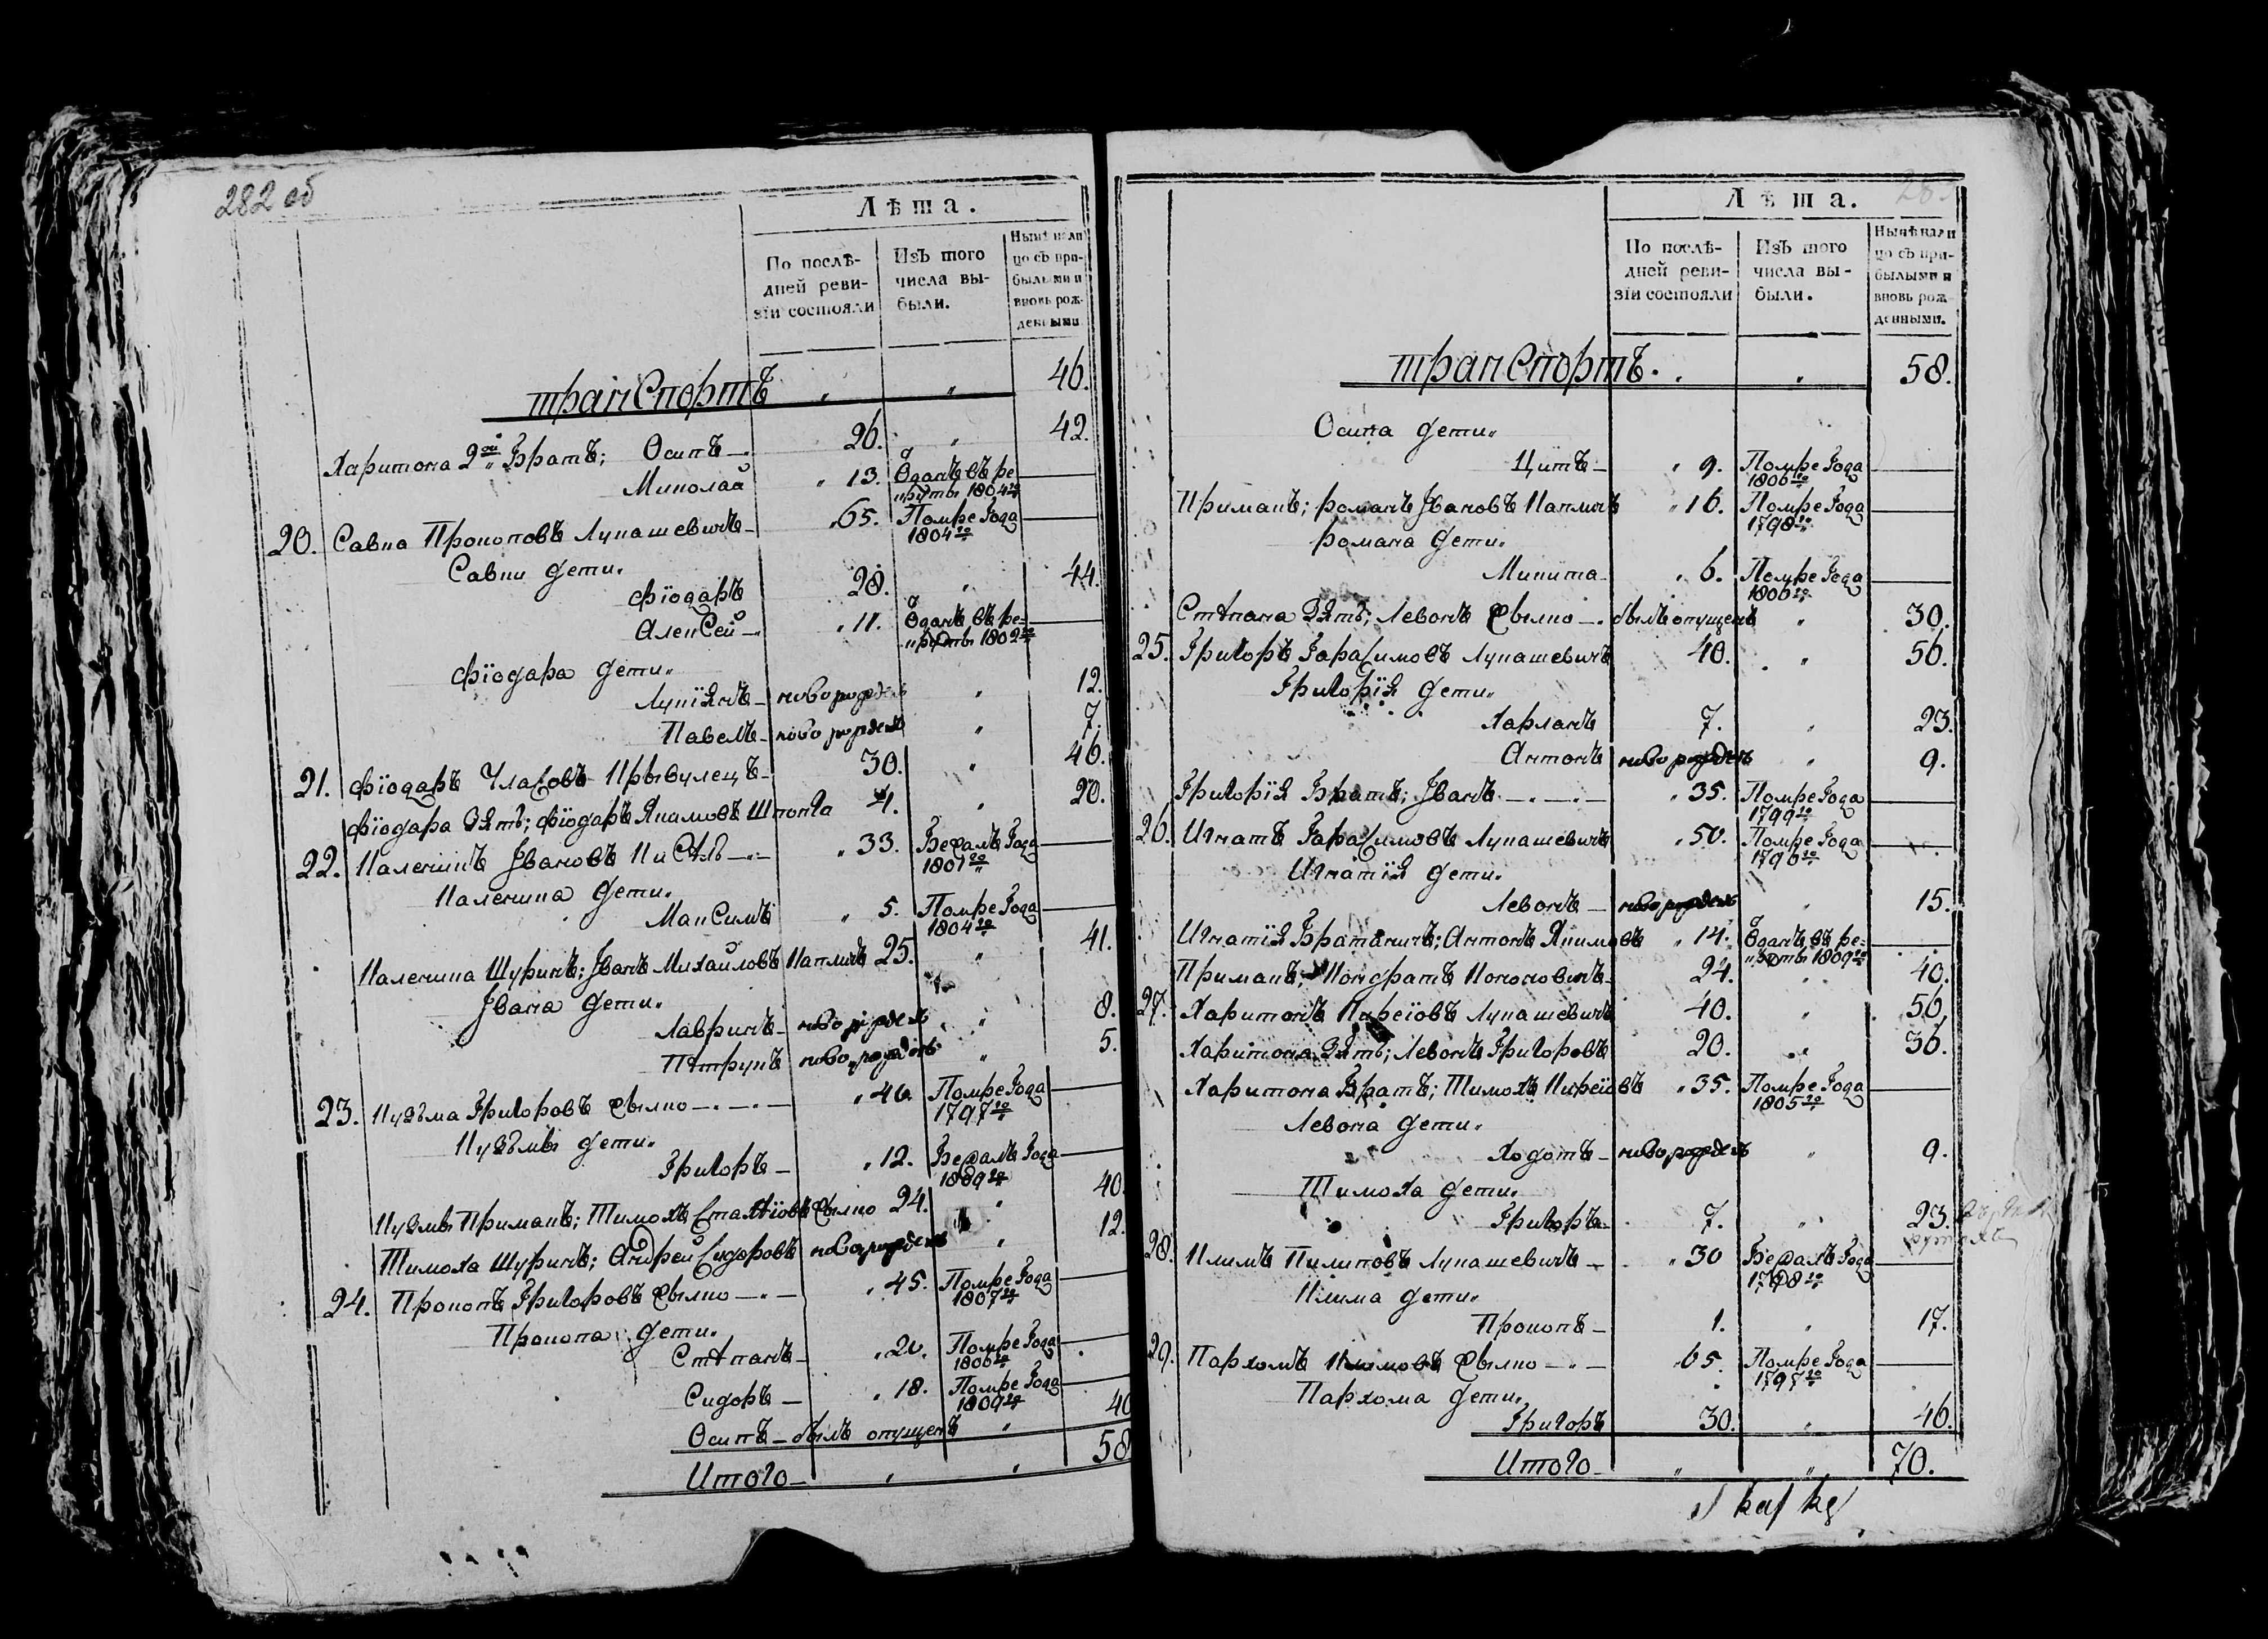 282 об
Лѣта.
По послѣ-
дней реви-
зіи состояли
Изъ того
числа вы-
были.
Нынѣ нали
цо съ при-
былыми и
вновь рож-
денными
транспортъ " " 46.
Харитона 2ой Братъ; Осипъ — 26. " 42.
Миколай " 13. Ѿданъ въ ре
круты 1804го
20. Савка Прокоповъ Лукашевичъ — " 65. Помре Года
1804го
Савки дети.
Фїодаръ 28. " 44.
Алексей — " 11. Ѿданъ въ ре=
круты 1802го
Фїодара дети.
Лукїянъ — новорожденъ " 12.
Павелъ — новорожденъ " 7.
21. Фїодаръ Уласовъ Крывулецъ — 30. " 46.
Фїодара Зять; Фїодаръ Якимовъ Шпонка 4. " 20.
22. Каленикъ Івановъ Кисель — " 33. Бежалъ Года
1801го
Каленика дети.
Максимъ " 5. Помре Года
1804го
Каленика Шуринъ; Іванъ Михайловъ Капличъ 25. " 41.
Івана дети.
Лавринъ — новорожденъ " 8.
Петрукъ новорожденъ " 5.
23. Кузьма Григоровъ Свыпко — " 46. Помре Года
1797го
Кузьмы дети.
Григоръ — " 12. Бежалъ Года
1809го
Кузмы Примакъ; Тимохъ Стахѣіовъ Свыпко 24. " 40.
Тимоха Шуринъ; Андрей Сидоровъ новорожденъ " 12.
24. Прокопъ Григоровъ Свыпко — " 45. Помре Года
1807го
Прокопа дети.
Степанъ — " 20. Помре Года
1806го
Сидоръ — " 18. Помре Года
1809го
Осипъ — былъ опущенъ " 40
Итого — " " 58
Лѣта.
По послѣ-
дней реви-
зіи состояли
Изъ того
числа вы-
были.
Нынѣ нали
цо съ при-
былыми и
вновь рож-
денными.
транспортъ. " " 58.
Осипа дети.
Цитъ — " 9. Помре Года
1806го
Примакъ; Романъ Івановъ Капличъ " 16. Помре Года
1798го
Романа дети.
Микита — " 6. Помре Года
1806го
Степана Зять; Левонъ Свыпко — былъ опущенъ " 30.
25. Григоръ Гарасимовъ Лукашевичъ 40. " 56.
Григорїя дети.
Харланъ 7. " 23.
Антонъ новорожденъ " 9.
Григорїя Братъ; Іванъ — " 35. Помре Года
1799го
26. Игнатъ Гарасимовъ Лукашевичъ " 50. Помре Года
1796го
Игнатїя дети.
Левонъ — новорожденъ " 15.
Игнатїя Братаничъ; Антонъ Якимовъ " 14. Ѿданъ въ ре=
круты 1809го
Примакъ; Кондратъ Кононовичъ — 24. " 40.
27. Харитонъ Кирѣіовъ Лукашевичъ 40. " 56.
Харитона Зять; Левонъ Григоровъ 20. " 36.
Харитона Братъ; Тимохъ Кирѣіовъ " 35. Помре Года
1805го
Левона дети.
Ходотъ — новорожденъ " 9.
Тимоха дети.
Григоръ — 7. " 23.
28. Климъ Пилиповъ Лукашевичъ — " 30 Бежалъ Года
1798го
Клима дети.
Прокопъ — 1. " 17.
29. Пархомъ Климовъ Свыпко — " 65. Помре Года
1797го
Пархома дети.
Григоръ 30. " 46.
Итого — " " 70.